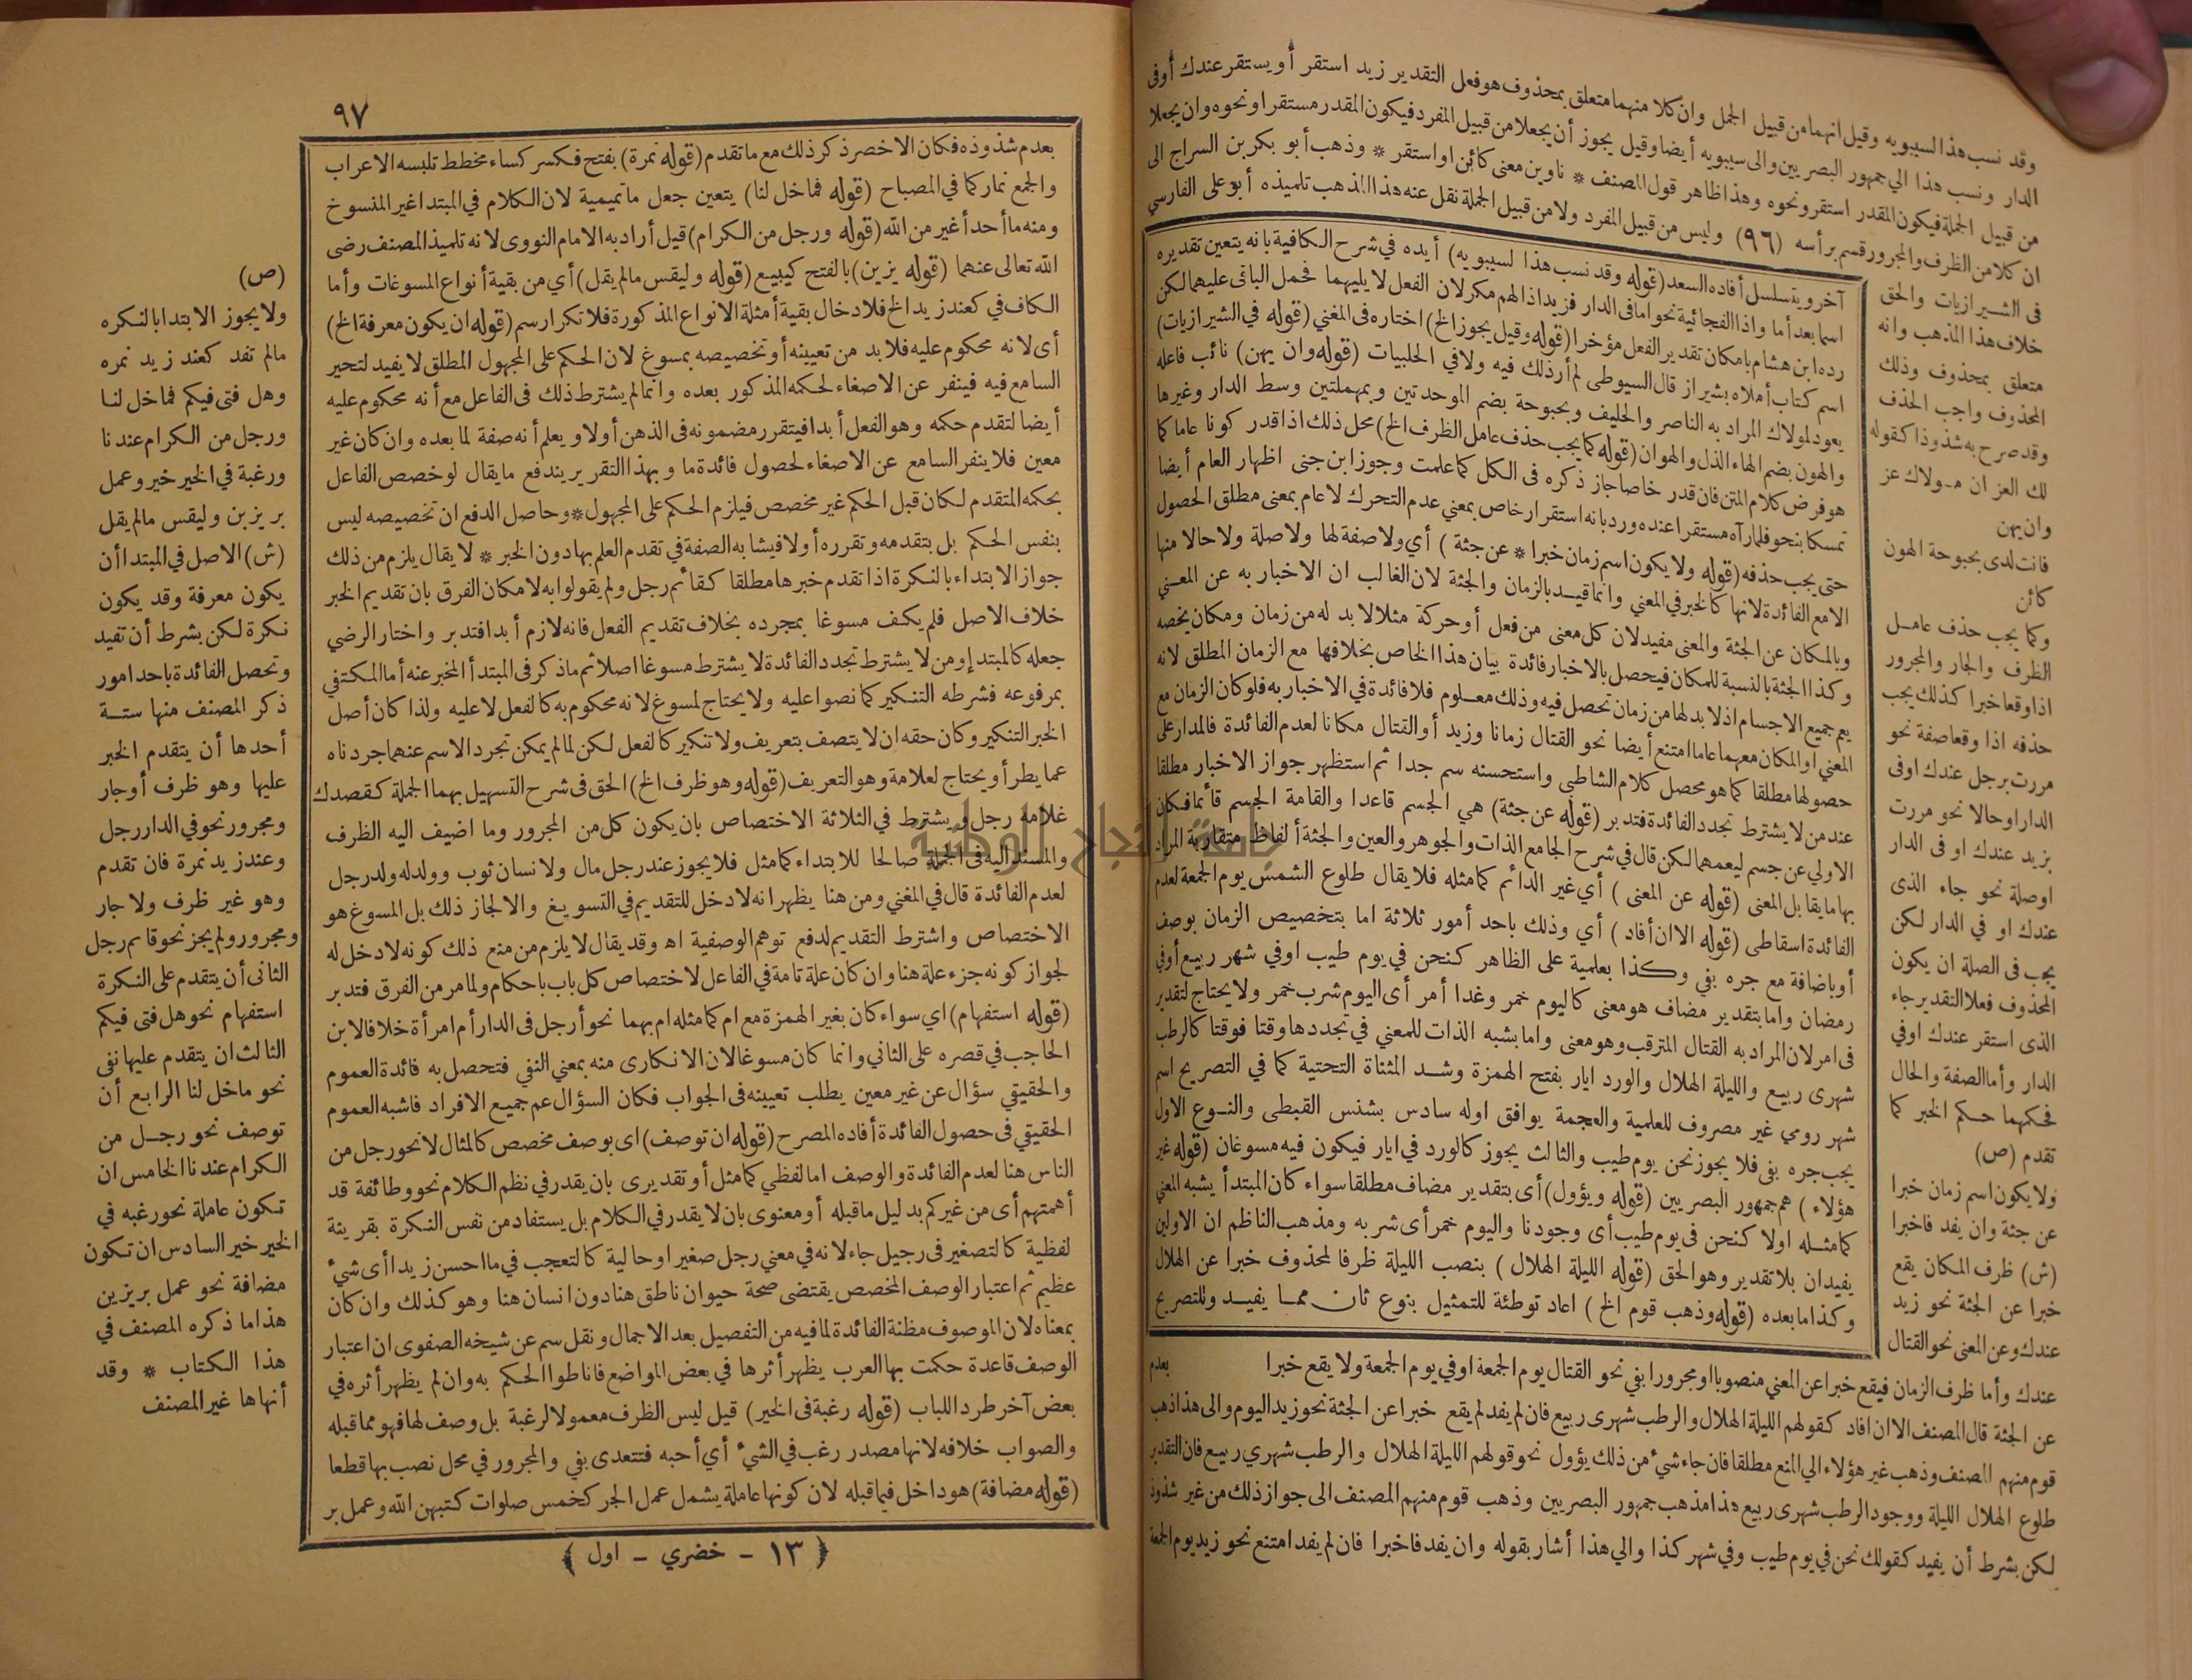 وقد نسب هذا لسيبويه وقيل انهما من قبيل الجمل وان كلا منهما متعلق بمحذوف هو فعل التقدير زيد استقر أو يستقر عندك أوفى
الدار ونسب هذا الي جمهور البصريين والى سيبويه أيضا وقيل يجوز أن يجعلا من قبيل المفرد فيكون المقدر مستقرا ونحوه وان يجعلا
من قبيل الجملة فيكون المقدر استقر ونحوه وهذا ظاهر قول المصنف * ناوين معنى كائن او استقر * وذهب أبو بكر بن السراج الى
ان كلا من الظرف والمجرور قسم برأسه (٩٦) وليس من قبيل المفرد ولا من قبيل الجملة نقل عنه هذا المذهب تلميذه أبو على الفارسي
فى الشيرازيات والحق
خلاف هذا المذهب وانه
متعلق بمحذوف وذلك
المحذوف واجب الحذف
وقد صرح به شذوذا كقوله
لك العز ان مولاك عز
وان يهن
فانت لدى بحبوحة الهون
كائن
وكما يجب حذف عامل
الظرف والجار والمجرور
اذا وقعا خبرا كذلك يجب
حذفه اذا وقعا صفة نحو
مررت برجل عندك اوفى
الدار او حالا نحو مررت
بزيد عندك او فى الدار
اوصلة نحو جاء الذى
عندك او في الدار لكن
يجب فى الصلة ان يكون
المحذوف فعلا التقدير جاء
الذى استقر عندك اوفي
الدار وأما الصفة والحال
فحكمهما حكم الخبر كما
تقدم (ص)
ولا يكون اسم زمان خبرا
عن جثة وان يفد فاخبرا
(ش) ظرف المكان يقع
خبرا عن الجثة نحو زيد
عندك وعن المعنى نحو القتال
آخر ويتسلسل أفاده السعد (قوله وقد نسب هذا لسيبويه) أيده في شرح الكافية بانه يتعين تقديره
اسما بعد أما واذا الفجائية نحو اما فى الدار فزيد اذا لهم مكر لان الفعل لا يليهما فحمل الباقى عليهما لكن
رده ابن هشام بامكان تقدير الفعل مؤخرا (قوله وقيل يجوز الخ) اختاره فى المغني (قوله في الشيرازيات)
اسم كتاب أملاه بشيراز قال السيوطى لم أر ذلك فيه ولا في الحلبيات (قوله وان يهن) نائب فاعله
يعود لمولاك المراد به الناصر والحليف وبحبوحة بضم الموحدتين وبمهملتين وسط الدار وغيرها
والهون بضم الهاء الذل والهوان (قوله كما يجب حذف عامل الظرف الخ) محل ذلك اذا قدر كونا عاما كما
هو فرض كلام المتن فان قدر خاصا جاز ذكره فى الكل كما علمت وجوز ابن جنى اظهار العام أيضا
تمسكا بنحو فلما رآه مستقرا عنده ورد بانه استقرار خاص بمعني عدم التحرك لا عام بمعنى مطلق الحصول
حتى يجب حذفه (قوله ولا يكون اسم زمان خبرا * عن جثة ) أي ولا صفة لها ولا صلة ولا حالا منها
الا مع الفائدة لانها كالخبر في المعني وانما قيد بالزمان والجثة لان الغالب ان الاخبار به عن المعنى
وبالمكان عن الجثة والمعنى مفيد لان كل معنى من فعل أو حركة مثلا لا بد له من زمان ومكان يخصه
وكذا الجثة بالنسبة للمكان فيحصل بالاخبار فائدة بيان هذا الخاص بخلافها مع الزمان المطلق لانه
يعم جميع الاجسام اذ لا بد لها من زمان تحصل فيه وذلك معلوم فلا فائدة في الاخبار به فلو كان الزمان مع
المعني او المكان معهما عاما امتنع أيضا نحو القتال زمانا وزيد أو القتال مكانا لعدم الفائدة فالمدار على
حصولها مطلقا كما هو محصل كلام الشاطبي واستحسنه سم جدا ثم استظهر جواز الاخبار مطلقا
عند من لا يشترط تجدد الفائدة فتدبر (قوله عن جثة) هي الجسم قاعدا والقامة الجسم قائما فكان
الاولي عن جسم ليعمهما لكن قال في شرح الجامع الذات والجوهر والعين والجثة ألفاظ متقاربة المراد
بها ما يقابل المعنى (قوله عن المعنى ) أي غير الدائم كما مثله فلا يقال طلوع الشمس يوم الجمعة لعدم
الفائدة اسقاطى (قوله الا ان أفاد ) أي وذلك باحد أمور ثلاثة اما بتخصيص الزمان بوصف
أو باضافة مع جره بفي وكذا بعلمية على الظاهر كنحن في يوم طيب اوفي شهر ربيع أوفي
رمضان واما بتقدير مضاف هو معنى كاليوم خمر وغدا أمر أى اليوم شرب خمر ولا يحتاج لتقدير
فى امر لان المراد به القتال المترقب وهو معنى واما بشبه الذات للمعني في تجددها وقتا فوقتا كالرطب
شهرى ربيع والليلة الهلال والورد ايار بفتح الهمزة وشد المثناة التحتية كما في التصريح اسم
شهر رومي غير مصروف للعلمية والعجمة يوافق اوله سادس بشنس القبطى والنوع الاول
يجب جره بفى فلا يجوز نحن يوم طيب والثالث يجوز كالورد في ايار فيكون فيه مسوغان (قوله غير
هؤلاء ) هم جمهور البصريين (قوله ويؤول) أى بتقدير مضاف مطلقا سواء كان المبتدأ يشبه المعني
كما مثله اولا كنحن فى يوم طيب أى وجودنا واليوم خمر أى شربه ومذهب الناظم ان الاولين
يفيدان بلا تقدير وهو الحق (قوله الليلة الهلال ) بنصب الليلة ظرفا لمحذوف خبرا عن الهلال
وكذا ما بعده (قوله وذهب قوم الخ ) اعاد توطئة للتمثيل بنوع ثان مما يفيد وللتصريح
بعدم
عندك وأما ظرف الزمان فيقع خبرا عن المعني منصوبا او مجرورا بفي نحو القتال يوم الجمعة او في يوم الجمعة ولا يقع خبرا
عن الجثة قال المصنف الا ان افاد كقولهم الليلة الهلال والرطب شهرى ربيع فان لم يفد لم يقع خبرا عن الجثة نحو زيد اليوم والى هذا ذهب
قوم منهم المصنف وذهب غير هؤلاء الي المنع مطلقا فان جاء شيء من ذلك يؤول نحو قولهم الليلة الهلال والرطب شهري ربيع فان التقدير
طلوع الهلال الليلة ووجود الرطب شهرى ربيع هذا مذهب جمهور البصريين وذهب قوم منهم المصنف الى جواز ذلك من غير شذوذ
لكن بشرط أن يفيد كقولك نحن في يوم طيب وفي شهر كذا والي هذا أشار بقوله وان يفد فاخبرا فان لم يفد امتنع نحو زيد يوم الجمعة
٩٧
بعدم شذوذه فكان الاخصر ذكر ذلك مع ما تقدم (قوله نمرة) بفتح فكسر كساء مخطط تلبسه الاعراب
والجمع نمار كما في المصباح (قوله فما خل لنا) يتعين جعل ما تميمية لان الكلام في المبتدا غير المنسوخ
ومنه ما أحد أغير من الله (قوله ورجل من الكرام) قيل أراد به الامام النووى لانه تلميذ المصنف رضى
الله تعالى عنهما (قوله يزين) بالفتح كيبيع (قوله وليقس ما لم يقل) أي من بقية أنواع المسوغات وأما
الكاف في كعند زيد الخ فلادخال بقية أمثلة الانواع المذكورة فلا تكرار سم (قوله ان يكون معرفة الخ)
أى لانه محكوم عليه فلا بد من تعيينه أو تخصيصه بمسوغ لان الحكم على المجهول المطلق لا يفيد لتحير
السامع فيه فينفر عن الاصغاء لحكمه المذكور بعده وانما لم يشترط ذلك فى الفاعل مع أنه محكوم عليه
أيضا لتقدم حكمه وهو الفعل أبدا فيتقرر مضمونه فى الذهن أولا ويعلم أنه صفة لما بعده وان كان غير
معين فلا ينفر السامع عن الاصغاء لحصول فائدة ما وبهذا التقرير يندفع ما يقال لو خصص الفاعل
بحكمه المتقدم لكان قبل الحكم غير مخصص فيلزم الحكم على المجهول * وحاصل الدفع ان تخصيصه ليس
بنفس الحكم بل بتقدمه وتقرره أولا فيشابه الصفة في تقدم العلم بها دون الخبر * لا يقال يلزم من ذلك
جواز الابتداء بالنكرة اذا تقدم خبرها مطلقا كقائم رجل ولم يقولوا به لامكان الفرق بان تقديم الخبر
خلاف الاصل فلم يكف مسوغا بمجرده بخلاف تقديم الفعل فانه لازم أبدا فتدبر واختار الرضي
جعله كالمبتدإ ومن لا يشترط تجدد الفائدة لا يشترط مسوغا اصلا ثم ما ذكر فى المبتدأ المخبر عنه أما المكتفي
بمرفوعه فشرطه التنكير كما نصوا عليه ولا يحتاج لمسوغ لانه محكوم به كالفعل لا عليه ولذا كان أصل
الخبر التنكير وكان حقه ان لا يتصف بتعريف ولا تنكير كالفعل لكن لما لم يمكن تجرد الاسم عنهما جردناه
عما يطرأ ويحتاج لعلامة وهو التعريف (قوله وهو ظرف الخ) الحق فى شرح التسهيل بهما الجملة كقصدك
غلامه رجل ويشترط في الثلاثة الاختصاص بان يكون كل من المجرور وما اضيف اليه الظرف
والمسند اليه فى الجملة صالحا للابتداء كما مثل فلا يجوز عند رجل مال ولا نسان ثوب وولد له ولد رجل
لعدم الفائدة قال في المغني ومن هنا يظهر انه لا دخل للتقديم في التسويغ والا لجاز ذلك بل المسوغ هو
الاختصاص واشترط التقديم لدفع توهم الوصفية اه وقد يقال لا يلزم من منع ذلك كونه لا دخل له
لجواز كونه جزء علة هنا وان كان علة تامة في الفاعل لاختصاص كل باب باحكام ولما مر من الفرق فتدبر
(قوله استفهام) اي سواء كان بغير الهمزة مع ام كما مثله ام بهما نحو أرجل فى الدار أم امرأة خلافا لابن
الحاجب في قصره على الثاني وانما كان مسوغا لان الانكارى منه بمعني النفي فتحصل به فائدة العموم
والحقيقي سؤال عن غير معين يطلب تعيينه فى الجواب فكان السؤال عم جميع الافراد فاشبه العموم
الحقيقي فى حصول الفائدة أفاده المصرح (قوله ان توصف) اى بوصف مخصص كالمثال لا نحو رجل من
الناس هنا لعدم الفائدة والوصف اما لفظي كما مثل أو تقديرى بان يقدر في نظم الكلام نحو وطائفة قد
أهمتهم أى من غيركم بدليل ما قبله أو معنوى بان لا يقدر في الكلام بل يستفاد من نفس النكرة بقرينة
لفظية كالتصغير فى رجيل جاء لانه في معني رجل صغير او حالية كالتعجب في ما احسن زيدا أى شيء
عظيم ثم اعتبار الوصف المخصص يقتضى صحة حيوان ناطق هنا دون انسان هنا وهو كذلك وان كان
بمعناه لان الموصوف مظنة الفائدة لما فيه من التفصيل بعد الاجمال ونقل سم عن شيخه الصفوى ان اعتبار
الوصف قاعدة حكمت بها العرب يظهر أثرها في بعض المواضع فاناطوا الحكم به وان لم يظهر أثره في
بعض آخر طرد اللباب (قوله رغبة فى الخير) قيل ليس الظرف معمولا لرغبة بل وصف لها فهو مما قبله
والصواب خلافه لانها مصدر رغب في الشيء أي أحبه فتتعدى بفي والمجرور في محل نصب بها قطعا
(قوله مضافة) هو داخل فيما قبله لان كونها عاملة يشمل عمل الجر كخمس صلوات كتبهن الله وعمل بر
(ص)
ولا يجوز الابتدا بالنكره
ما لم تفد كعند زيد نمره
وهل فتى فيكم فما خل لنا
ورجل من الكرام عندنا
ورغبة في الخير خير وعمل
بر يزين وليقس ما لم يقل
(ش) الاصل في المبتدا أن
يكون معرفة وقد يكون
نكرة لكن بشرط أن تفيد
وتحصل الفائدة باحد امور
ذكر المصنف منها ستة
أحدها أن يتقدم الخبر
عليها وهو ظرف أو جار
ومجرور نحو في الدار رجل
وعند زيد نمرة فان تقدم
وهو غير ظرف ولا جار
ومجرور لم يجز نحو قائم رجل
الثانى أن يتقدم على النكرة
استفهام نحو هل فتى فيكم
الثالث ان يتقدم عليها نفى
نحو ما خل لنا الرابع أن
توصف نحو رجل من
الكرام عندنا الخامس ان
تكون عاملة نحو رغبه في
الخير خير السادس ان تكون
مضافة نحو عمل بر يزين
هذا ما ذكره المصنف في
هذا الكتاب * وقد
أنهاها غير المصنف
﴿ ١٣ - خضري - اول ﴾
جامعة النجاح الوطنية